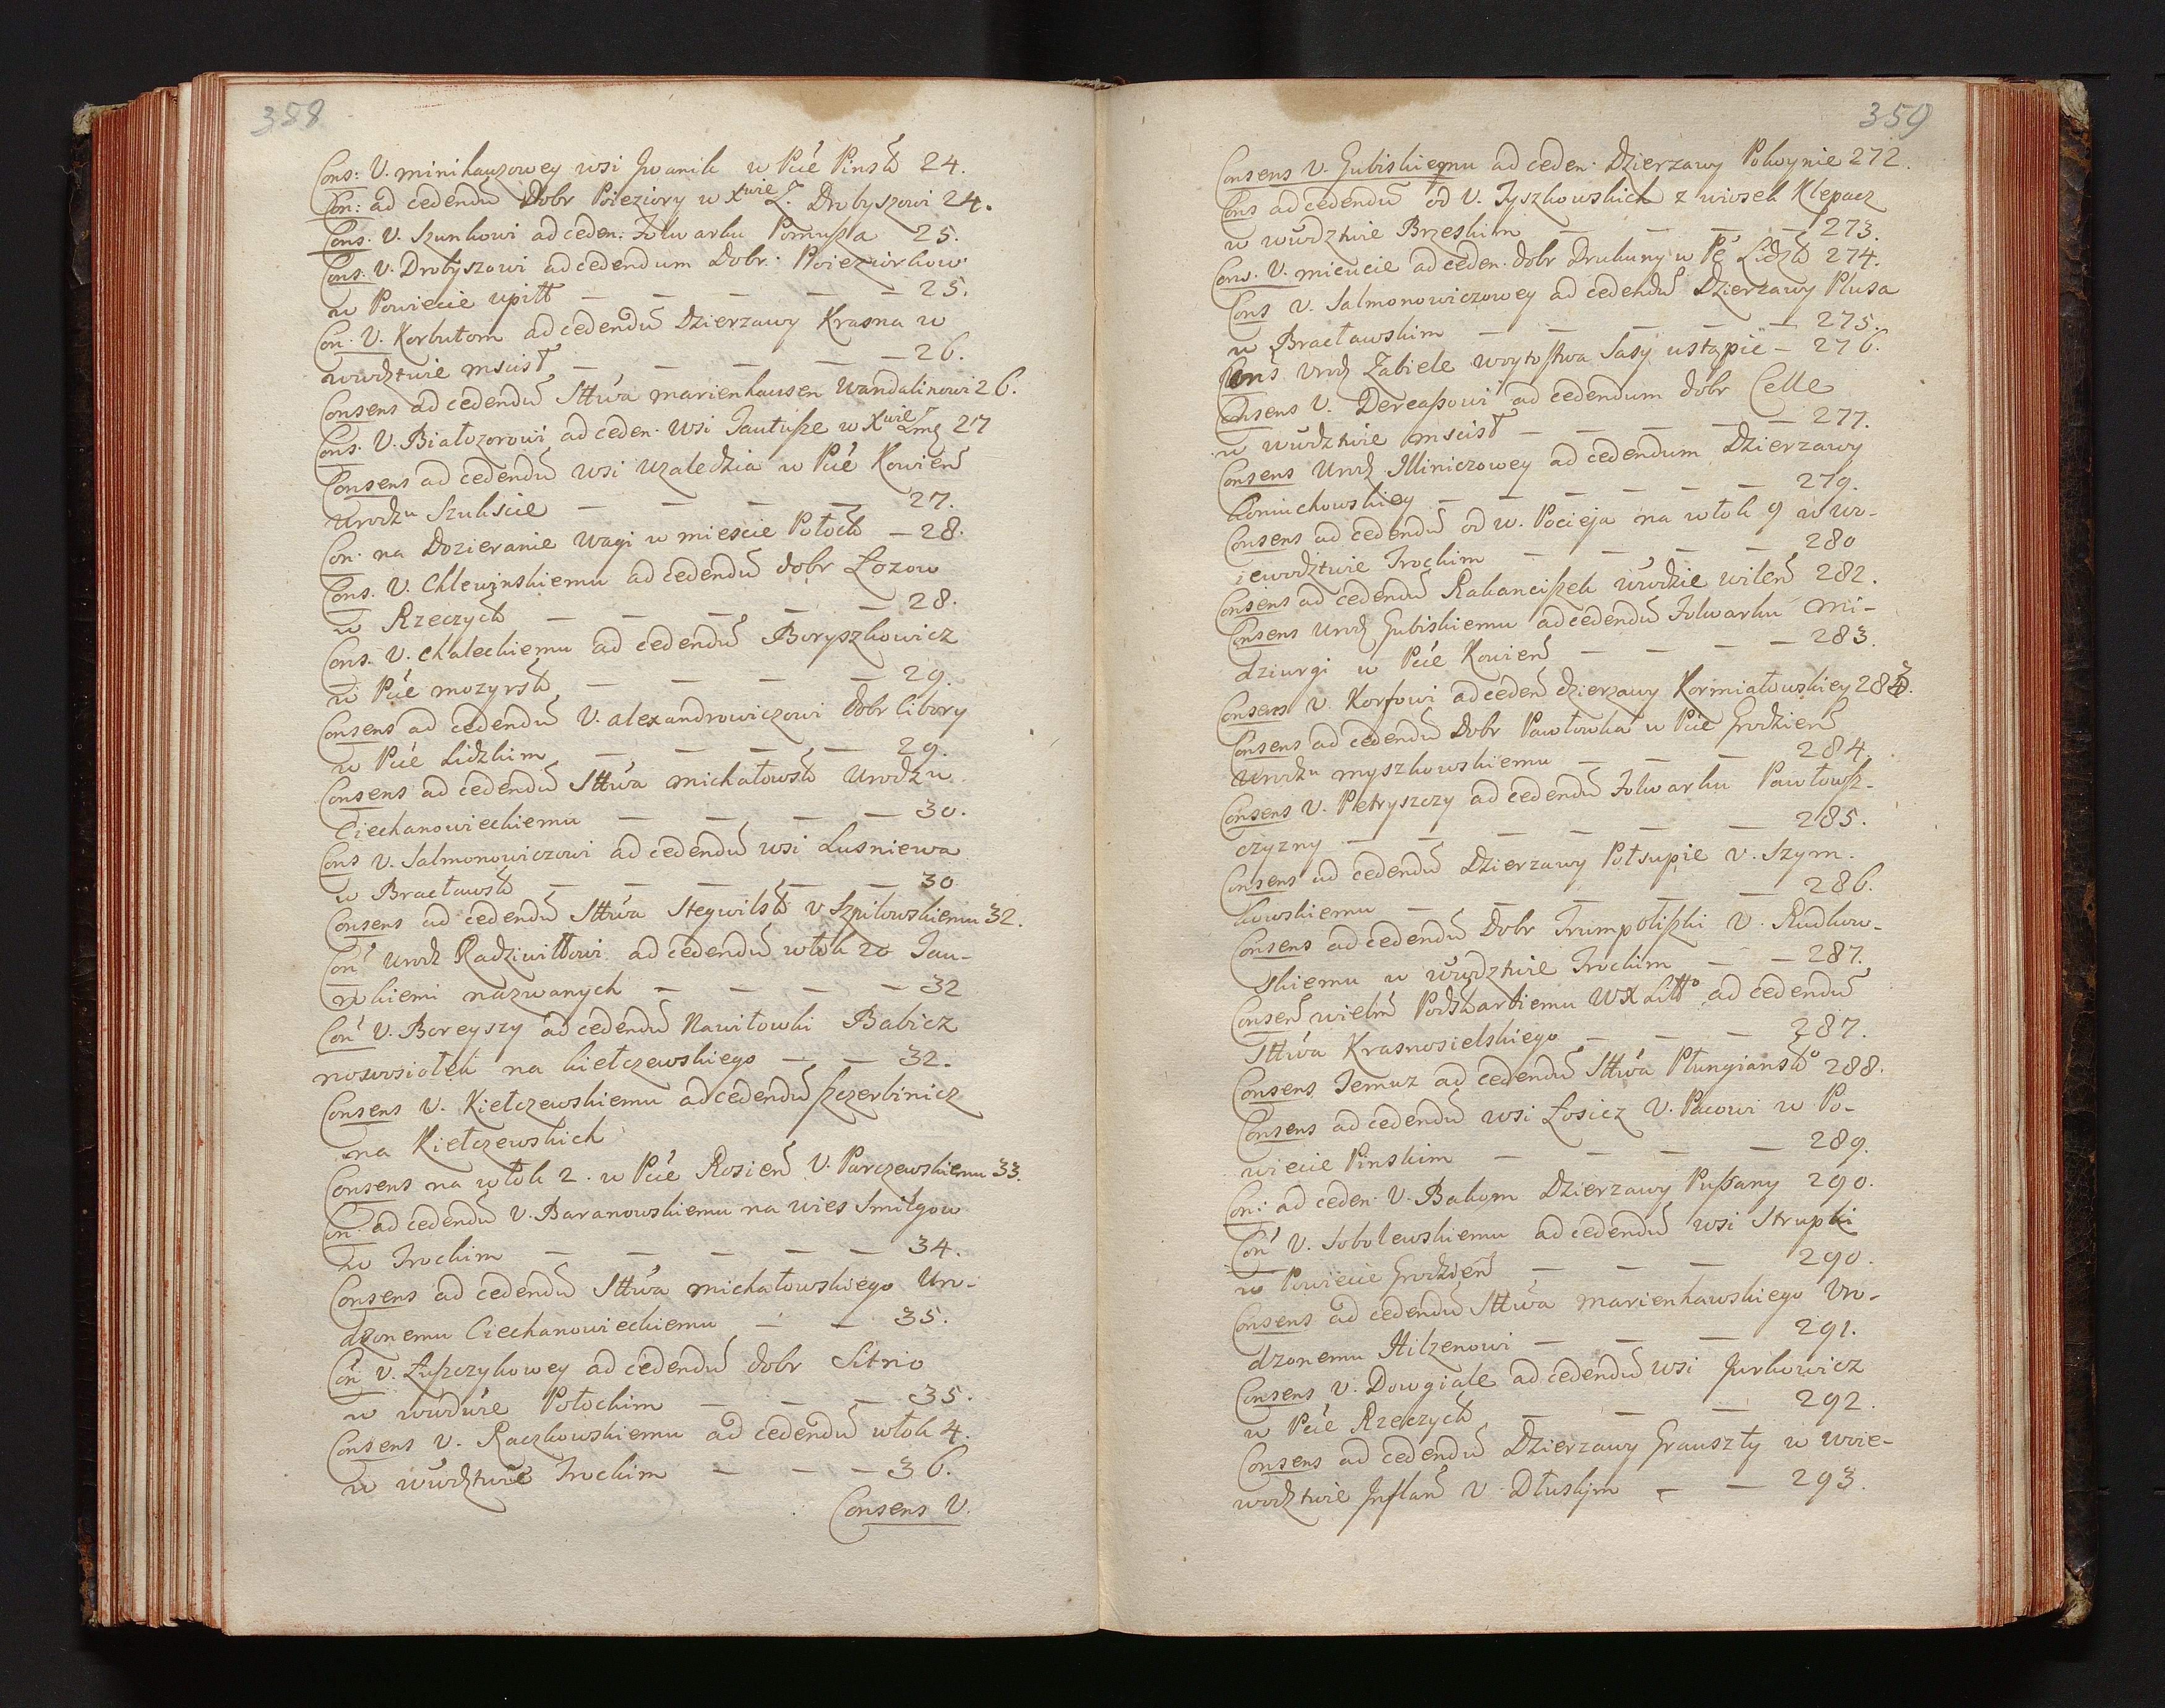 358
Cons: V. minihauzowey wsi Jwanik w Pcie Pinsk 24.
Con: ad cedendũ Dobr Poieziory w Xwie Ż. Drobyszowi 24.
Cons. V. Szunkowi ad ceden: Folwarku Pomusza 25.
Cons. V. Drobyszowi ad cedendum Dobr: Poieziorkow
w Powiecie upitt — — — — — 25.
Con. V. Korbutom ad cedendũ Dzierzawy Krasna w
wwdztwie mscist — — — — — 26.
Consens ad cedendũ Sttwa marienhausen Wandalinowi 26.
Cons. V. Białozorowi ad ceden. Wsi Jautusze w Xwie Żmg 27
Consens ad cedendũ wsi Uzaledzia w Pcie Kowień
Urodzu Szukscie — — — — — 27.
Con. na Dozieranie Wagi w miescie Połock — 28.
Cons. V. Chlewinskiemu ad cedendũ dobr Łozow
w Rzeczyck — — — — — 28.
Cons. V. chaleckiemu ad cedendũ Boryszkowicz
w Pcie mozyrsk — — — — — 29.
Consens ad cedendũ V. alexandrowiczowi dobr Cibory
w Pcie Lidzkim — — — — 29.
Consens ad cedendũ Sttwa michałowsk Urodzu
Ciechanowieckiemu — — — — 30.
Cons V. Salmonowiczowi ad cedendũ wsi Lusniewa
w Bracławsk — — — — — 30
Consens ad cedendũ Sttwa Stegwilsk V Szpilowskiemu 32.
Con Urodz Radziwiłłowi ad cedendũ włok 20 Jau-
nikiemi nazwanych — — — — 32
Con V. Boreyszy ad cedendũ Nawiłowki Babicz
nowosiołek na kiełczewskiego — — 32.
Consens V. Kiełczewskiemu ad cedendũ szczerbinicz
na Kiełczewskich
Consens na włok 2. w Pcie Rosień V. Parczewskiemu 33.
Con ad cedendũ V. Baranowskiemu na wies Smilgow
w Trockim — — — — — 34.
Consens ad cedendũ Sttwa michałowskiego Uro-
dzonemu Ciechanowieckiemu — — 35.
Con V. Łuszczykowey ad cedendũ dobr Sitno
w wwdwie Połockim — — — 35.
Consens V. Raczkowskiemu ad cedendũ włok 4.
w wwdztwie Trockim — — — 36.
Consens V.
359
Consens V. Gubiskiemu ad ceden. Dzierzawy Pokoynie 272.
Cons ad cedendũ od V. Tyszkowskich z wiosek Klepacz
w wwdztwie Brzeskim — — — — 273.
Cons. V. micucie ad ceden. dobr Drukuny w Pe Lidzk 274.
Cons V. Salmonowiczowey ad cedendũ Dzierzawy Plusa
w Bracławskim — — — — — 275.
Cons Urdz Zabiele woytostwa Sasy ustąpic — 276.
Consens V. Dereaszowi ad cedendum dobr Celle
w wwdztwie mscist — — — — — 277.
Consens Urodz Illiniczowey ad cedendum Dzierzawy
Koniuchowskiey — — — — — — 279.
Consens ad cedendũ od w. Pocieja na włok 9 w wo-
iewodztwie Trockim — — — — 280
Consens ad cedendũ Rakanciszek wwdzie wileń 282.
Consens Urodz Gubiskiemu ad cedendũ Folwarku Mi-
dziurgi w Pcie Kowień — — — — 283.
Consens V. Korfowi ad cedeñ dzierzawy Kormiałowskiey 283.
Consens ad cedendũ Dobr Pawłowka w Pcie Grodzień
Urodzu myszkowskiemu — — — 284.
Consens V. Petryszczy ad cedendũ Folwarku Pawłowsz-
czyzny — — — — — — 285.
Consens ad cedendũ Dzierzawy Potsupie V. Szym-
kowskiemu — — — — — 286.
Consens ad cedendũ Dobr Trumpoliszki V. Rudkow-
skiemu w wwdztwie Trockim — — 287.
Conseñ wielm Podskarbiemu WX Litto ad cedendũ
Sttwa Krasnosielskiego — — — 287.
Consens Temuz ad cedendũ Sttwa Płungiansko 288.
Consens ad cedendũ wsi Łosicz V. Pacowi w Po-
wiecie Pinskim — — — — 289.
Con: ad ceden. V. Bakom Dzierzawy Puszany 290.
Con V. Sobolewskiemu ad cedendũ wsi Strupki
w Powiecie Grodzień — — — 290.
Consens ad cedendũ Sttwa marienhawskiego Uro-
dzonemu Hilzenowi — — — 291.
Consens V. Dowgiale ad cedendũ wsi Jurkowicz
w Pcie Rzeczyck — — — 292.
Consens ad cedendũ Dzierzawy Grauszty w woie-
wodztwie Jnflañ V. Dłuskim — — 293.